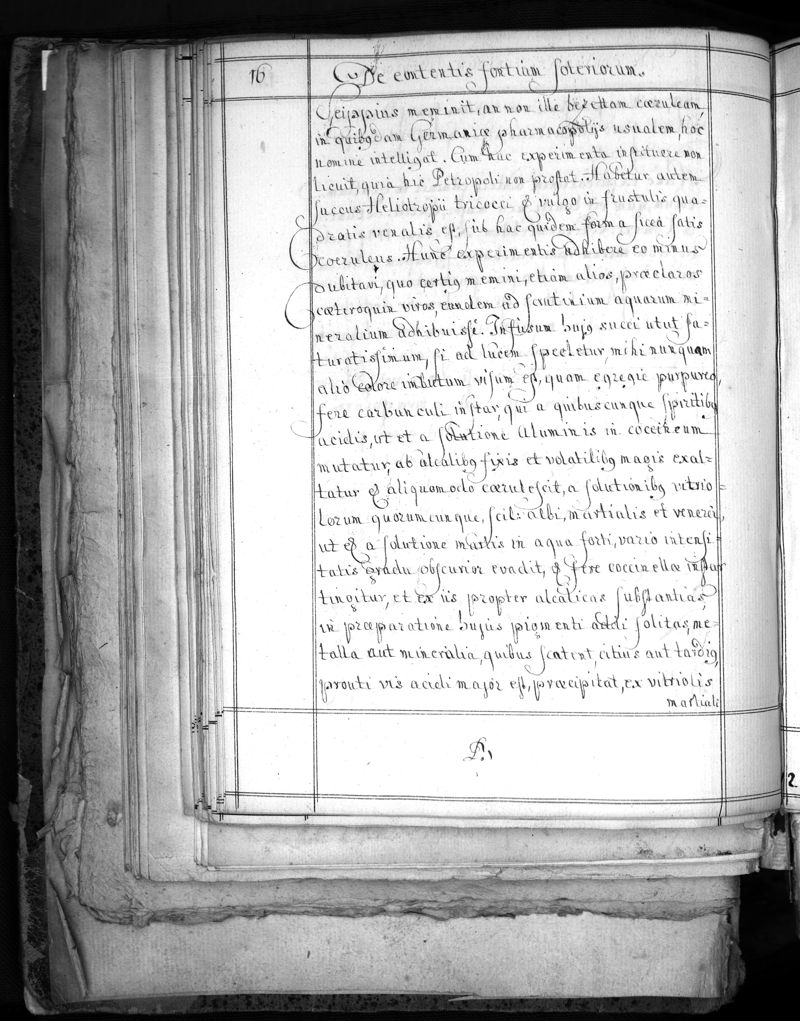 16 De contentis fontium soteriorum.
Seippius meminit, an non ille bezettam cœruleam,
in quibqdam Germaniæ pharmacopolijs usualem, hoc
nomine intelligat. Cum hac experimenta instituere non
licuit, quia hic Petropoli non prostat. Habetur autem
succus Heliotropii tricocci & vulgo in frustulis qua-
dratis venalis est, sub hac quidem forma sicca satis
cœruleus. Hunc experimentis adhibere eo minus
dubitavi, quo certiq memini, etiam alios, præclaros
cæteroquin viros, eundem ad scrutinium aquarum mi=
neralium adhibuisse. Infusum hujq succi utut sa=
turatissimum, si ad lucem spectetur, mihi nunquam
alio colore imbutum visum est, quam egregie purpureo,
fere carbunculi instar, qui a quibuscunque spiritibq
acidis, ut et a solutione aluminis in coccineum
mutatur, ab alcalibq fixis et volatilibq magis exal=
tatur & aliquomodo cœrulescit, a solutionibq vitrio=
lorum quorumcunque, scil: albi, martialis et veneris,
ut & a solutione martis in aqua forti, vario intensi=
tatis gradu obscurior evadit, & fere coccinellæ instar
tingitur, et ex iis propter alcalicas substantias,
in præparatione hujus pigmenti addi solitas, me=
talla aut mineralia, quibus scatent, citius aut tardiq,
prouti vis acidi major est, præcipitat, ex vitriolis
martiali
2.